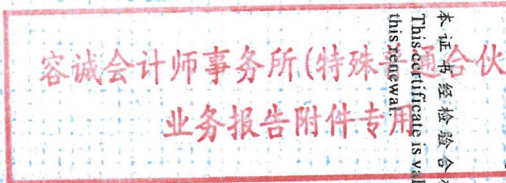 容诚会计师事务所(特殊普通合伙
业务报告附件专用
本证书经检验合
This certificate is val
this renewal.